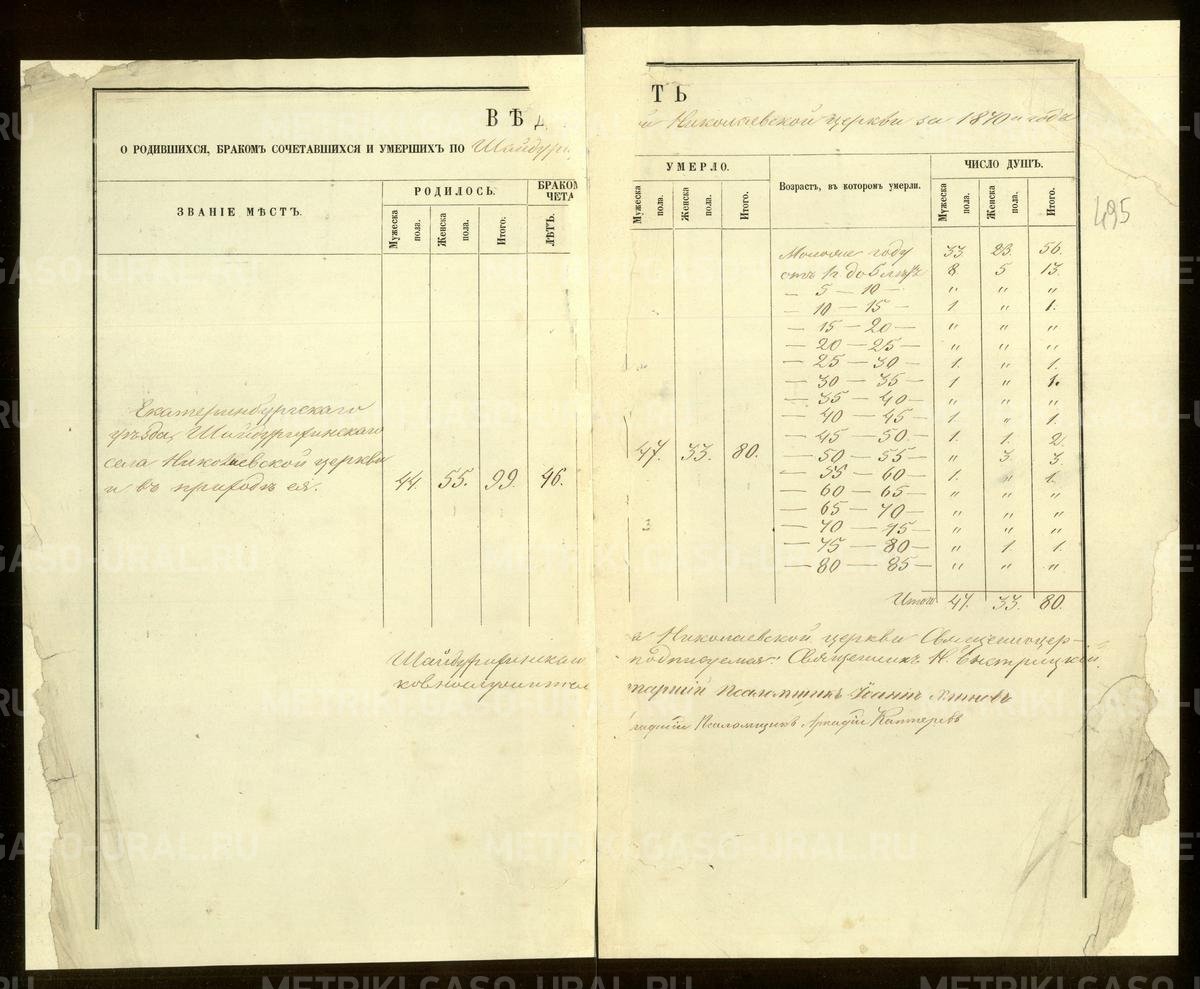 ВѢД
ТЬ
О РОДИВШИХСЯ, БРАКОМЪ СОЧЕТАВШИХСЯ И УМЕРШИХЪ ПО Шайдури
й Николаевской церкви за 1870й годъ
ЗВАНІЕ МѢСТЪ.
РОДИЛОСЬ.
Мужеска пола.
Женска пола.
Итого:
БРАКОМ
ЧЕТА
ЛѢТЪ.
Екатеринбургскаго
уѣзда, Шайдурихинскаго
села Николаевской церкви
и въ приходѣ ея.
44. 55. 99. 16.
Шайдурихинской
ковнослужители
УМЕРЛО.
Мужеска пола.
Женска пола.
Итого.
47. 33. 80.
Возрастъ, въ которомъ умерли.
ЧИСЛО ДУШЪ.
Мужеска пола.
Женска пола.
Итого.
495
Моложе году 33. 23. 56.
отъ 1 г. до 5 лѣтъ 8 5 13.
— 5 — 10 — " " "
— 10 — 15 — 1 " 1.
— 15 — 20 — " " "
— 20 — 25 — " " "
— 25 — 30 — 1. " 1.
— 30 — 35 — 1 " 1.
— 35 — 40 — " " "
— 40 — 45 — 1. " 1
— 45 — 50 — 1. 1. 2.
— 50 — 55 — " 3. 3.
— 55 — 60 — 1. " 1.
— 60 — 65 — " " "
— 65 — 70 — " " "
— 70 — 75 — " " "
— 75 — 80 — " 1. 1.
— 80 — 85 — " " "
Итого 47. 33. 80.
а Николаевской церкви Священноцер-
подписуемся: Священникъ Н. Быстрицкій.
таршій Псаломщикъ Іоаннъ
ладшій Псаломщикъ Аркадій Каптеревъ
METRIKI.GASO-URAL.RU